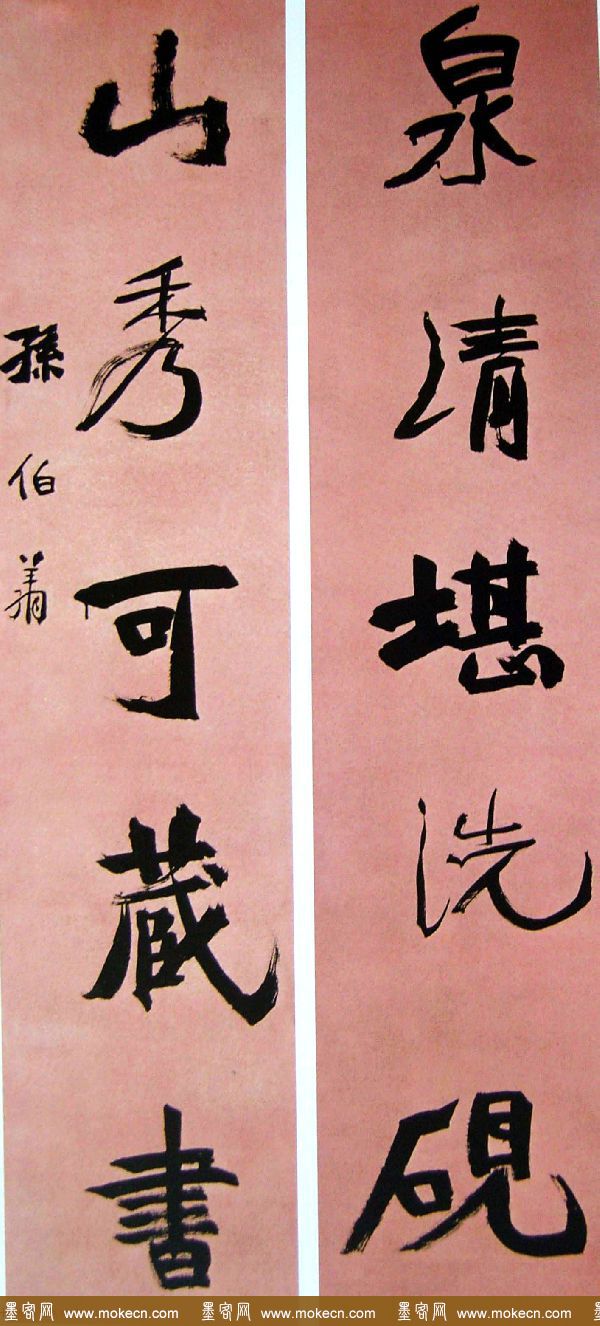 泉清堪洗硯
山秀可藏書
孫伯翔
墨客网 www.mokecn.com 墨客网 www.mokecn.com 墨客网 www.mokecn.com 墨